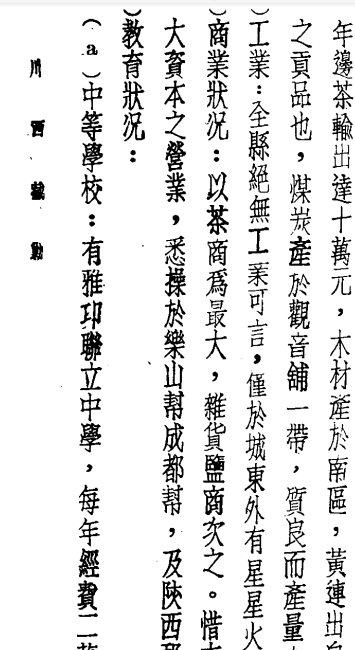 年邊茶輸出達十萬元，木材產於南區，黃連出
之貢品也，煤炭產於觀音舖一帶，質良而產量
）工業：全縣絕無工業可言，僅於城東外有星星火
）商業狀况：以茶商爲最大，雜貨鹽商次之。惜
大資本之營業，悉操於樂山幫成都幫，及陝西
）教育狀况：
（a）中等學校：有雅邛聯立中學，每年經費二
川西勘